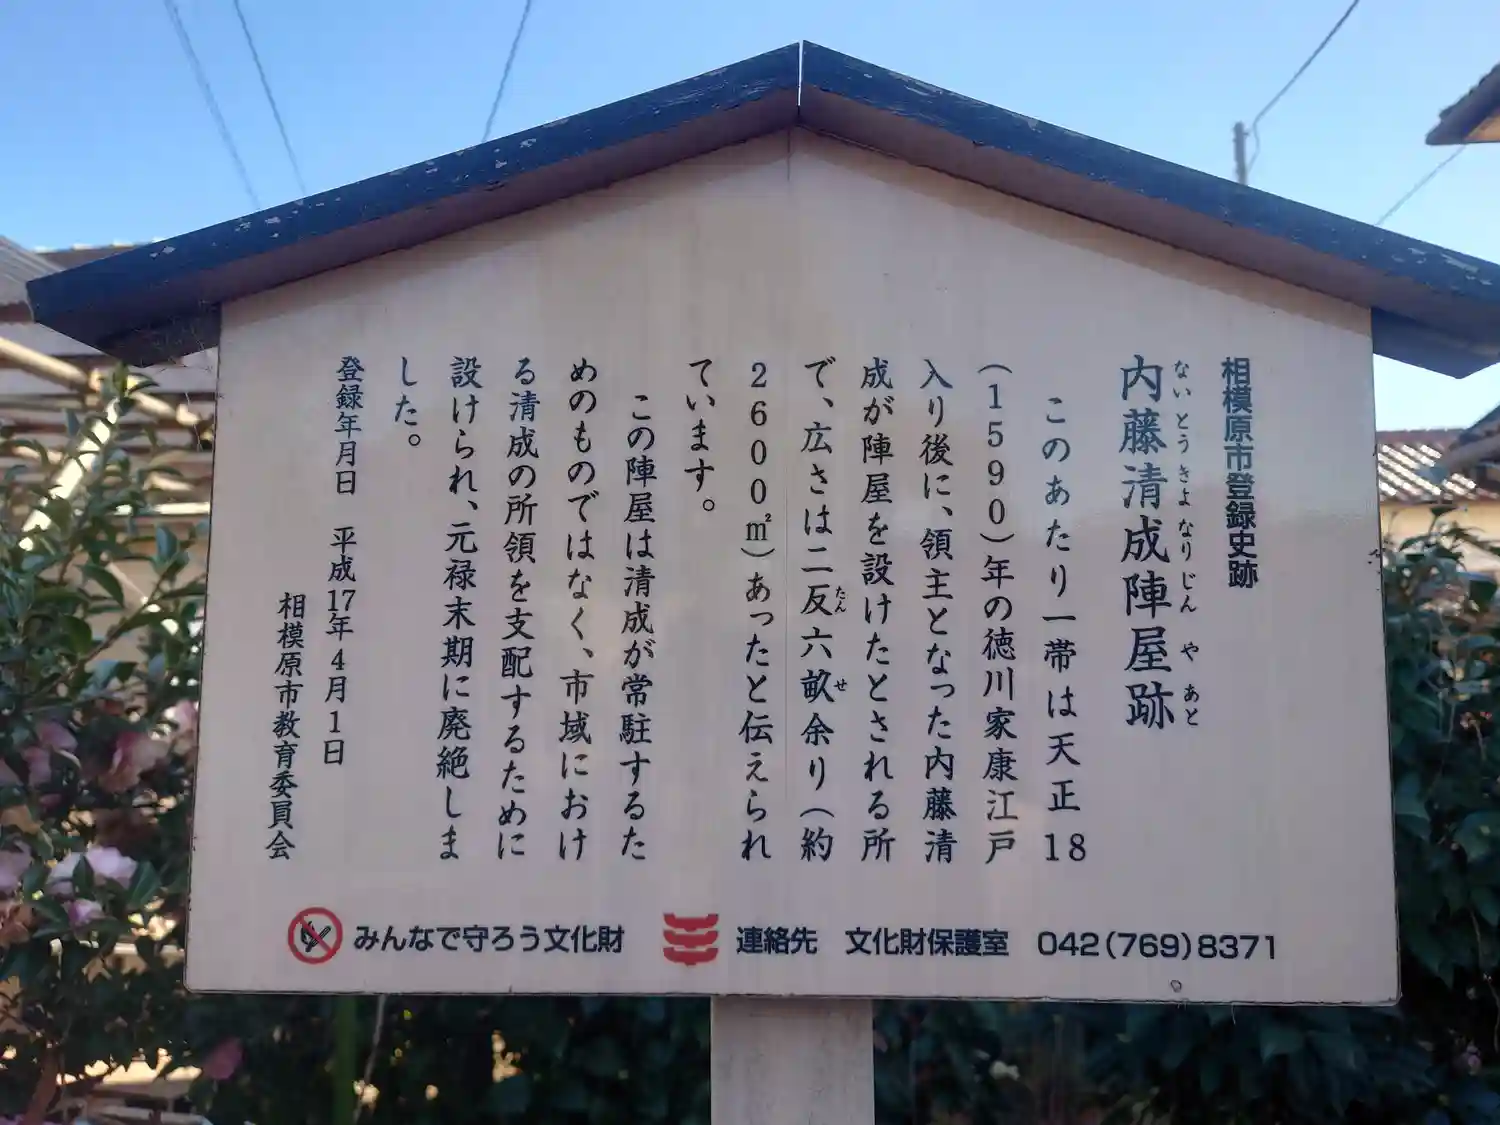 相模原市登録史跡
ないとうきよなりじんやあと
内藤清成陣屋跡
このあたり一帯は天正18
(1590)年の徳川家康江戸
入り後に、領主となった内藤清
成が陣屋を設けたとされる所
で、広さは二反六畝余り(約
たん せ
2600㎡)あったと伝えられ
ています。
この陣屋は清成が常駐するた
めのものではなく、市域におけ
る清成の所領を支配するために
設けられ、元禄末期に廃絶しま
した。
登録年月日 平成17年4月1日
相模原市教育委員会
みんなで守ろう文化財 連絡先 文化財保護室 042(769)8371